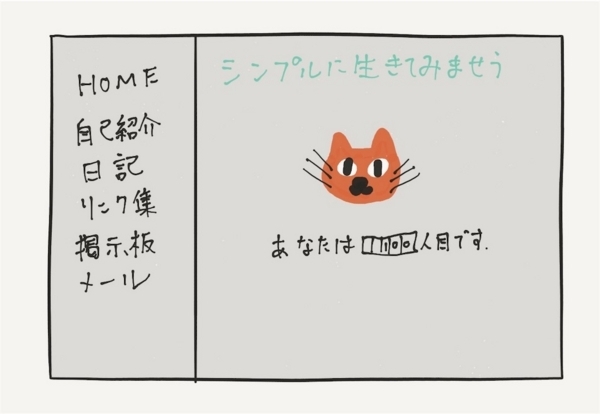 HOME
自己紹介
日記
リンク集
掲示板
メール
シンプルに生きてみませう
あなたは11100人目です.